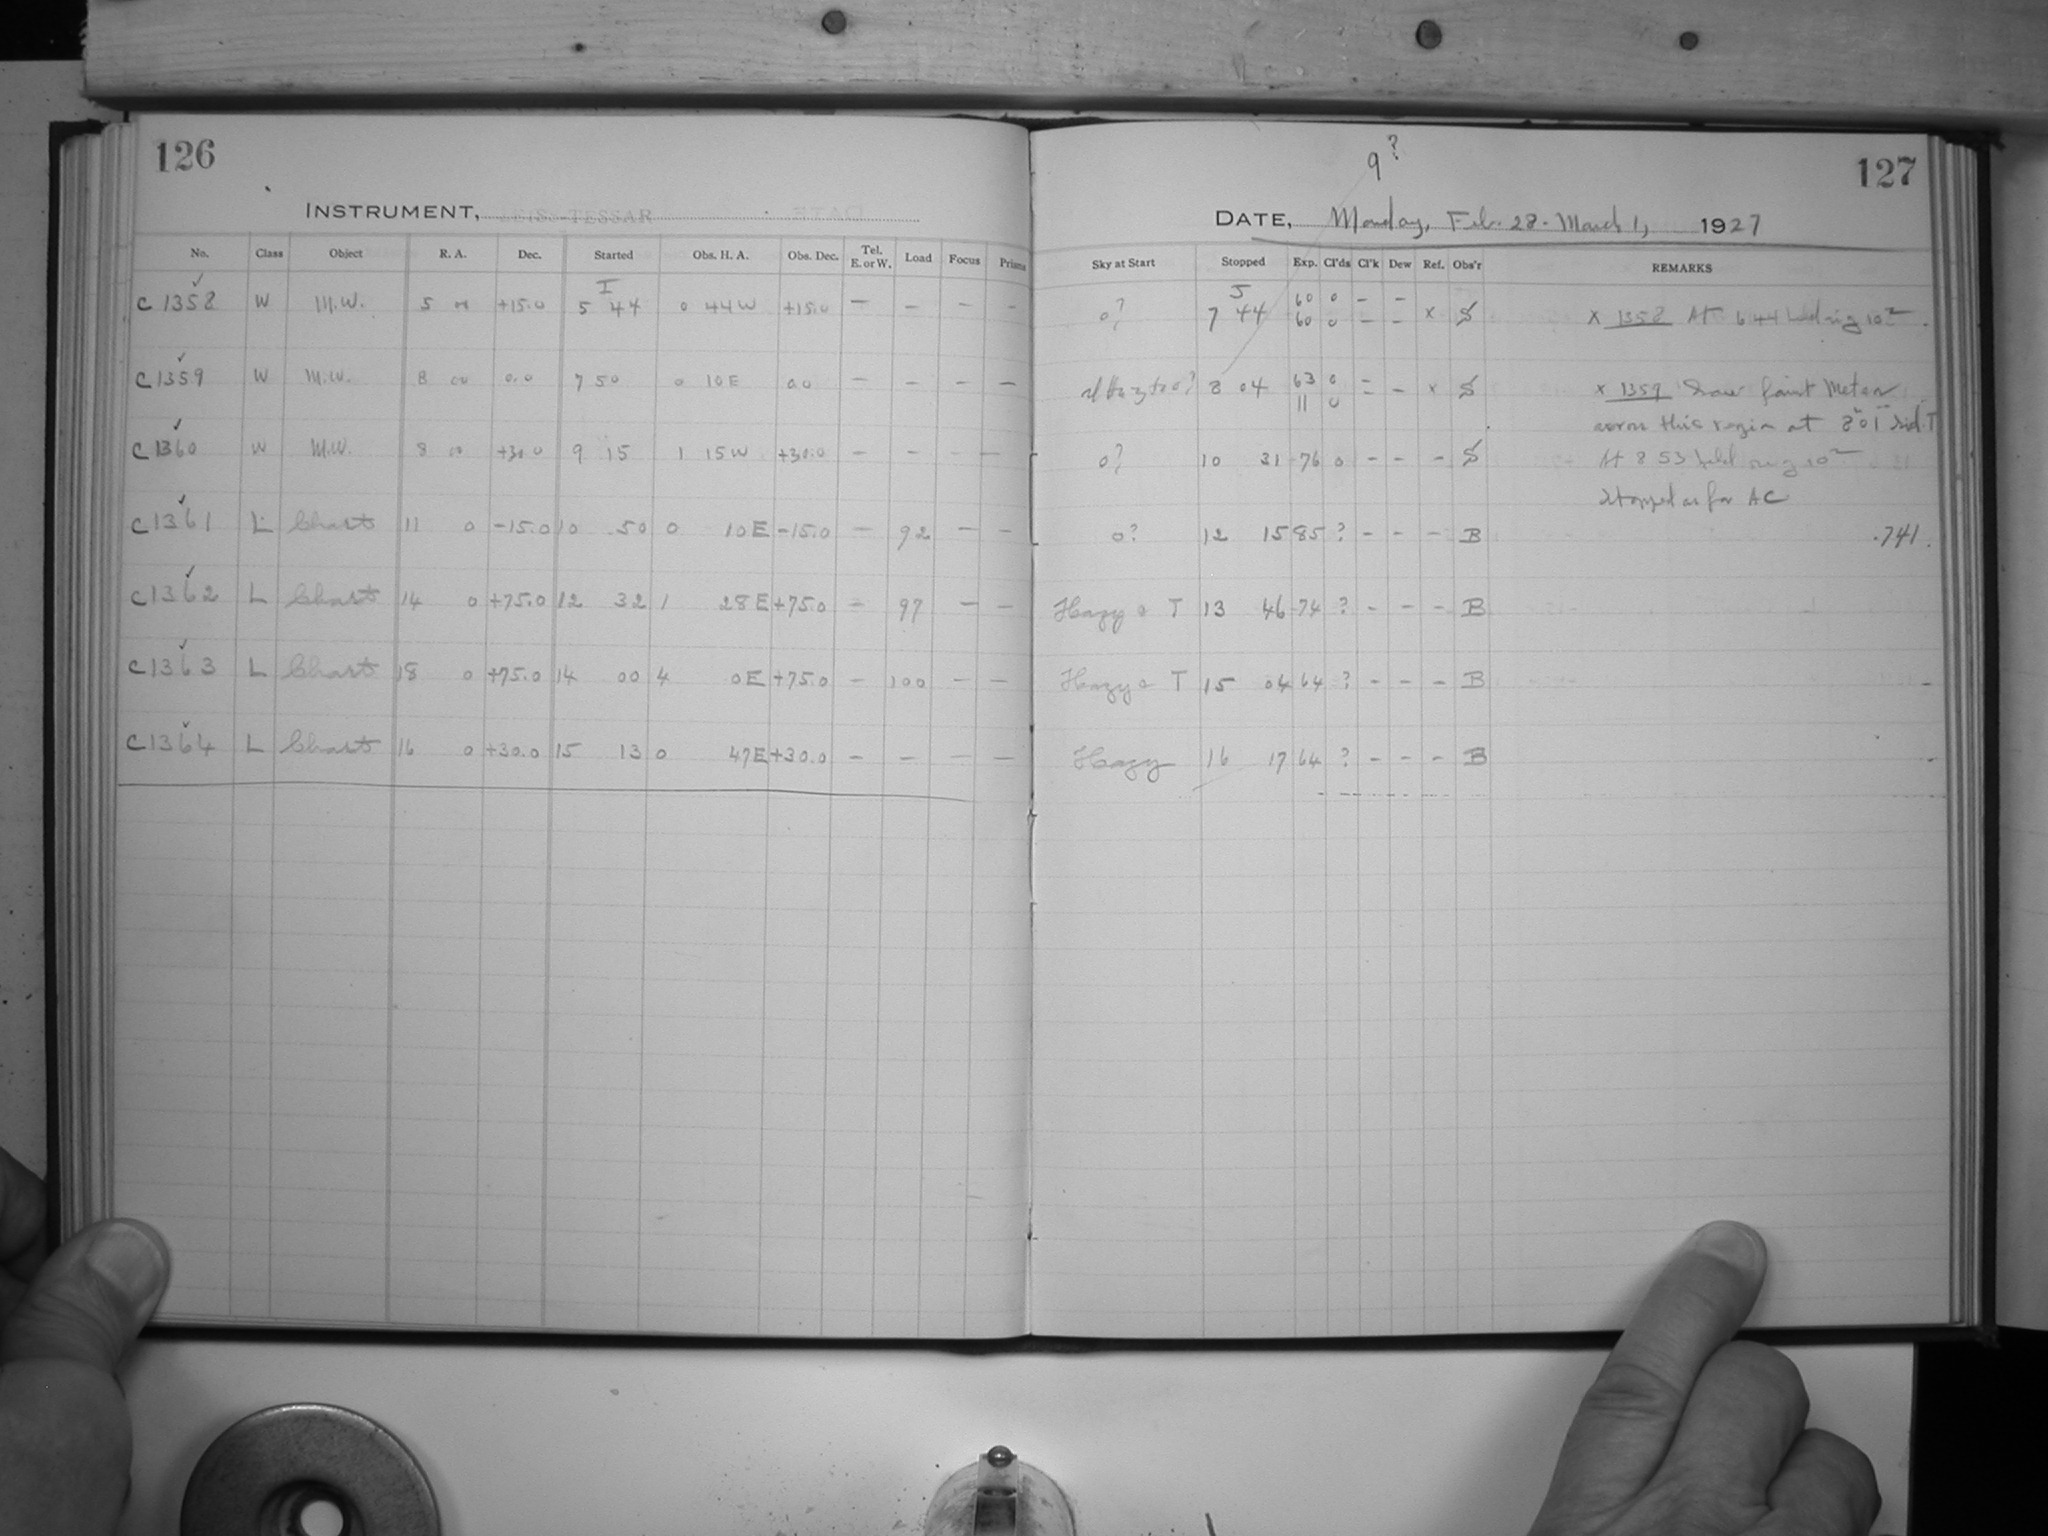 126
INSTRUMENT, I.S. TESSAR
No. Class Object R. A. Dec. Started Obs. H. A. Obs. Dec. Tel. E. or W. Load Focus Prisms
C 1358 W M.W. 5 00 +15.0 I 5 44 0 44W +15.0 — — — —
C 1359 W M.W. 8 00 0.0 7 50 0 10E 0.0 — — — —
C 1360 W M.W. 8 00 +30.0 9 15 1 15W +30.0 — — — —
C 1361 L Chart 11 0 -15.0 10 50 0 10E -15.0 — 92 — —
C 1362 L Chart 14 0 +75.0 12 32 1 28E +75.0 — 97 — —
C 1363 L Chart 18 0 +75.0 14 00 4 0E +75.0 — 100 — —
C 1364 L Chart 16 0 +30.0 15 13 0 47E +30.0 — — — —
9?
127
DATE, Monday, Feb. 28 - March 1, 1927
Sky at Start Stopped Exp. Cl'ds Cl'k Dew Ref. Obs'r REMARKS
0? 5 7 44 60 0 – – x S x 1358 At 6 44
60 0 – –
8 04 63 0 – – x S x 1359 Saw faint Meteor
11 0 –
across this region at 8 01 Sid. T
0? 10 31 76 0 – – – S At 8 53 held rig 10
Stopped as for AC
0? 12 15 85 ? – – – B .741
Hazy 0 T 13 46 74 ? – – – B
Hazy 0 T 15 04 64 ? – – – B –
Hazy 16 17 64 ? – – – B –